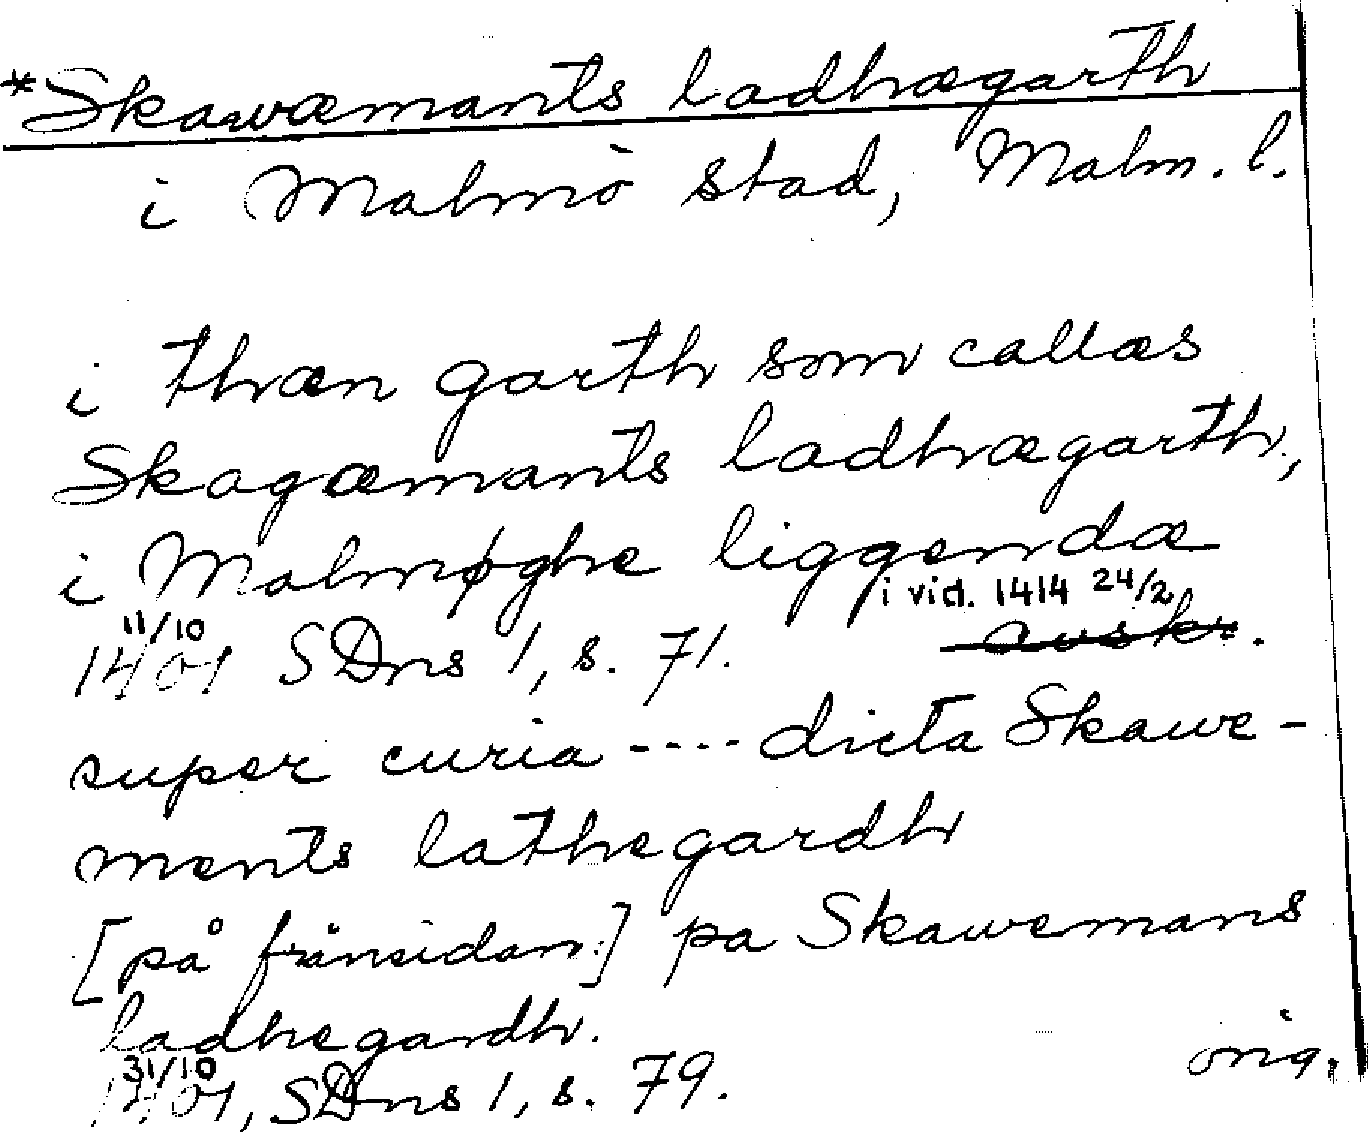 *Skawæmants ladhægarth
i Malmö stad, Malm. l.
i thæn garth som callas
Skagæmants ladhægarth,
i Malmøghe liggendæ
i vid. 1414 24/2
11/10
1401 SDns 1, s. 71. avskr.
super curia ---- dicta Skawe-
ments lathegardh
[på frånsidan:] pa Skawemans
ladhegardh.
31/10
1401, SDns 1, s. 79. orig.